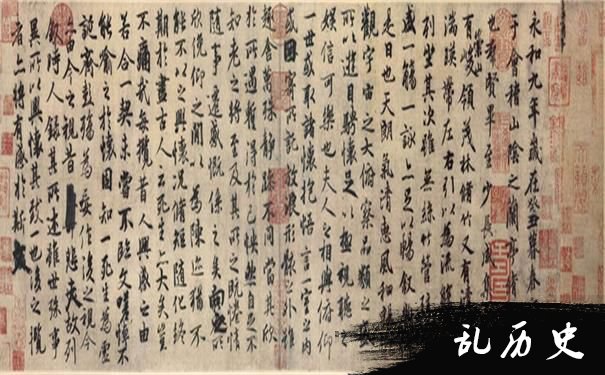 永和九年歲在癸丑暮春之
于會稽山陰之蘭亭脩
也羣賢畢至少長咸集
有崇山峻領茂林脩竹又有清
湍暎帶左右引以為流觴
列坐其次雖無絲竹管弦
盛一觴一詠亦足以暢敘
是日也天朗氣清惠風和暢
觀宇宙之大俯察品類之
所以遊目騁懷足以極視聽
娛信可樂也夫人之相與俯仰
一世或取諸懷抱悟言一室之內
或因寄所託放浪形骸之外雖
趣舍萬殊靜躁不同當其欣
於所遇暫得於己怏然自足不
知老之將至及其所之既惓情
隨事遷感慨係之矣向之所
欣俛仰之閒以為陳迹猶不
能不以之興懷況脩短隨化終
期於盡古人云死生亦大矣豈
不痛哉每攬昔人興感之由
若合一契未嘗不臨文嗟悼不
能喻之於懷固知一死生為虛
誕齊彭殤為妄作後之視今
亦由今之視昔悲夫故列
敘時人錄其所述雖世殊事
異所以興懷其致一也後之攬
者亦將有感於斯文
乱历史